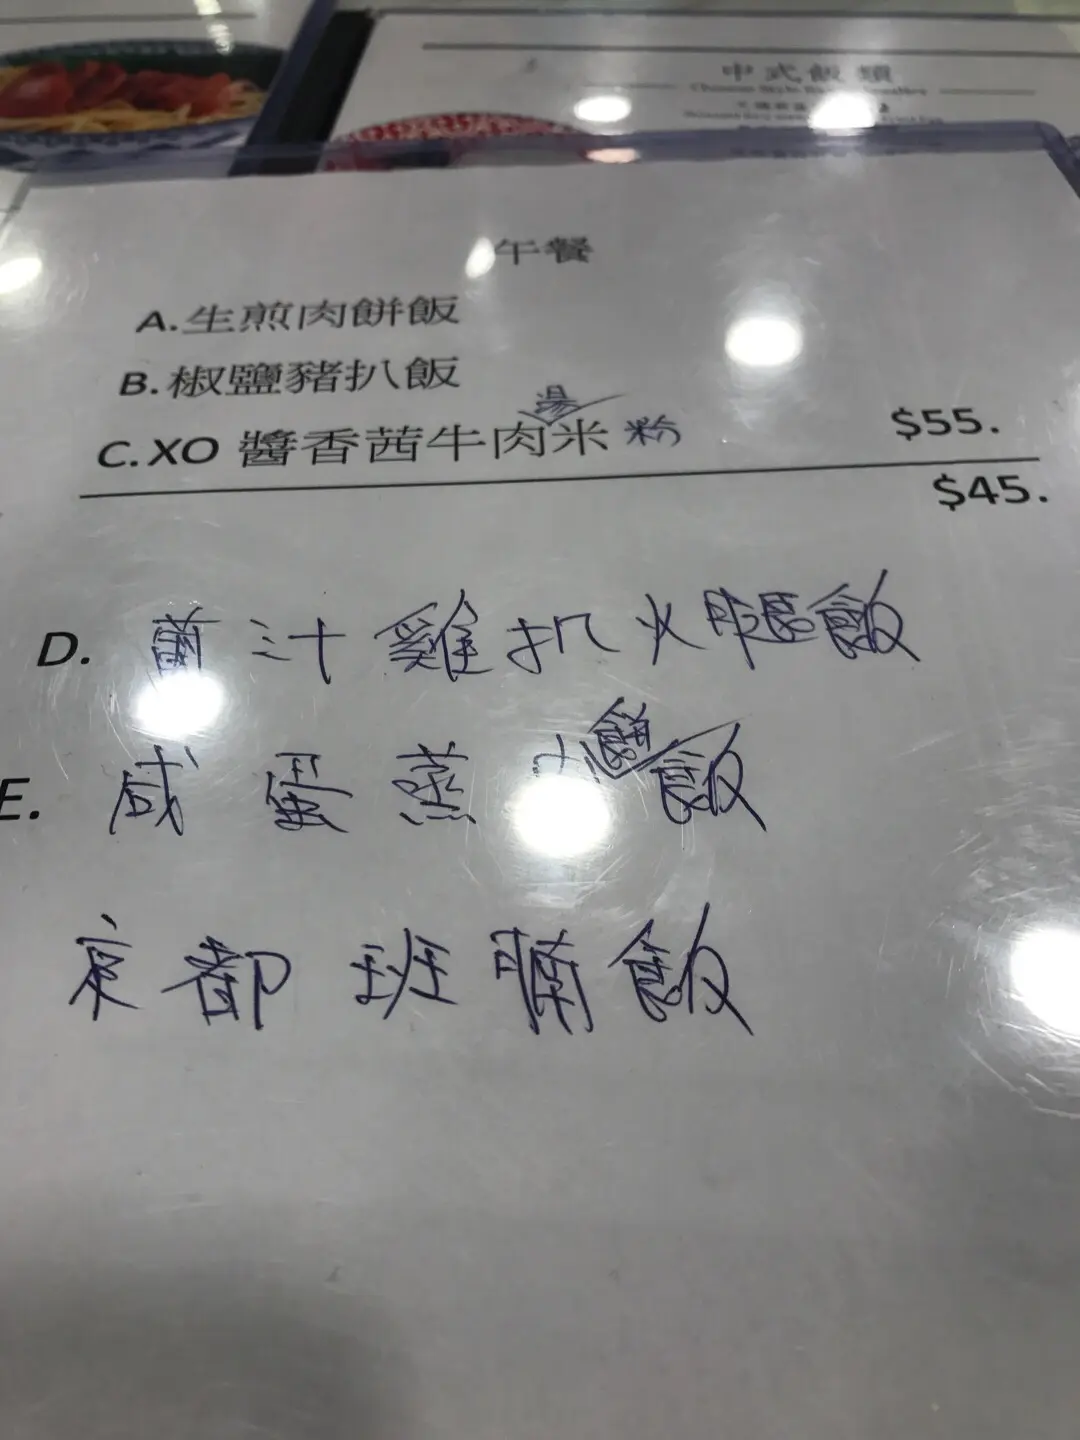 中式飯類
午餐
A.生煎肉餅飯
B.椒鹽豬扒飯
C.XO 醬香茜牛肉湯米粉 $55.
$45.
D. 茄汁雞扒火腿飯
E. 咸蛋蒸肉餅飯
京都班腩飯